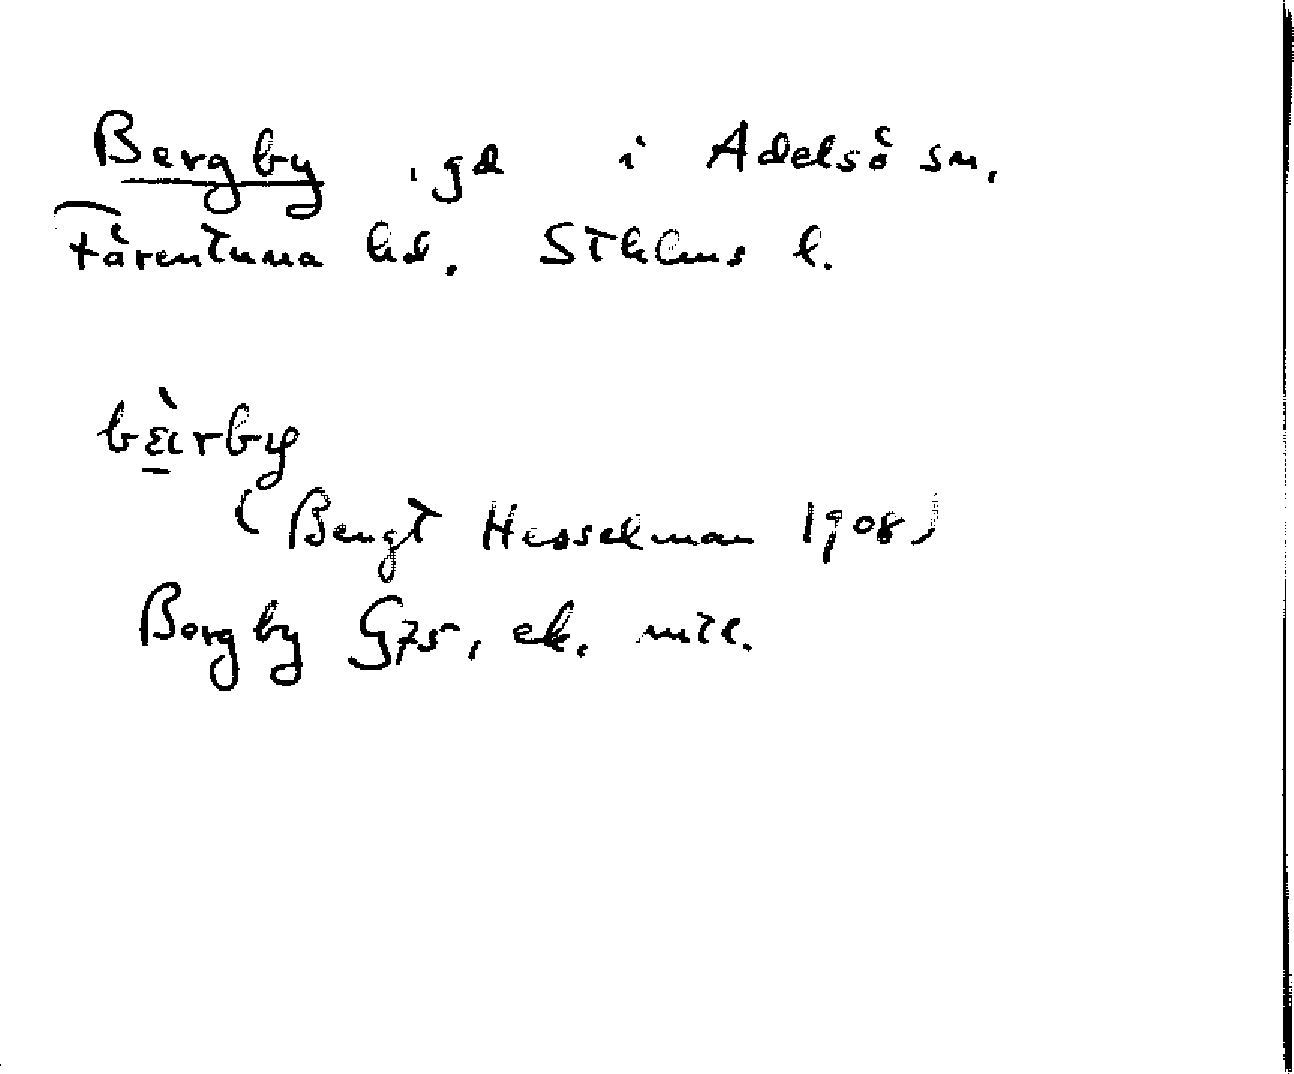 Bergby, gd i Adelsö sn,
Färentuna hd, Sthlms l.
bæ̀rby
(Bengt Hesselman 1908)
Bergby G75, ek.